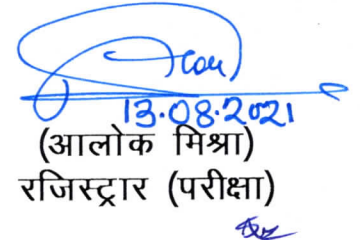 13.08.2021
(आलोक मिश्रा)
रजिस्ट्रार (परीक्षा)